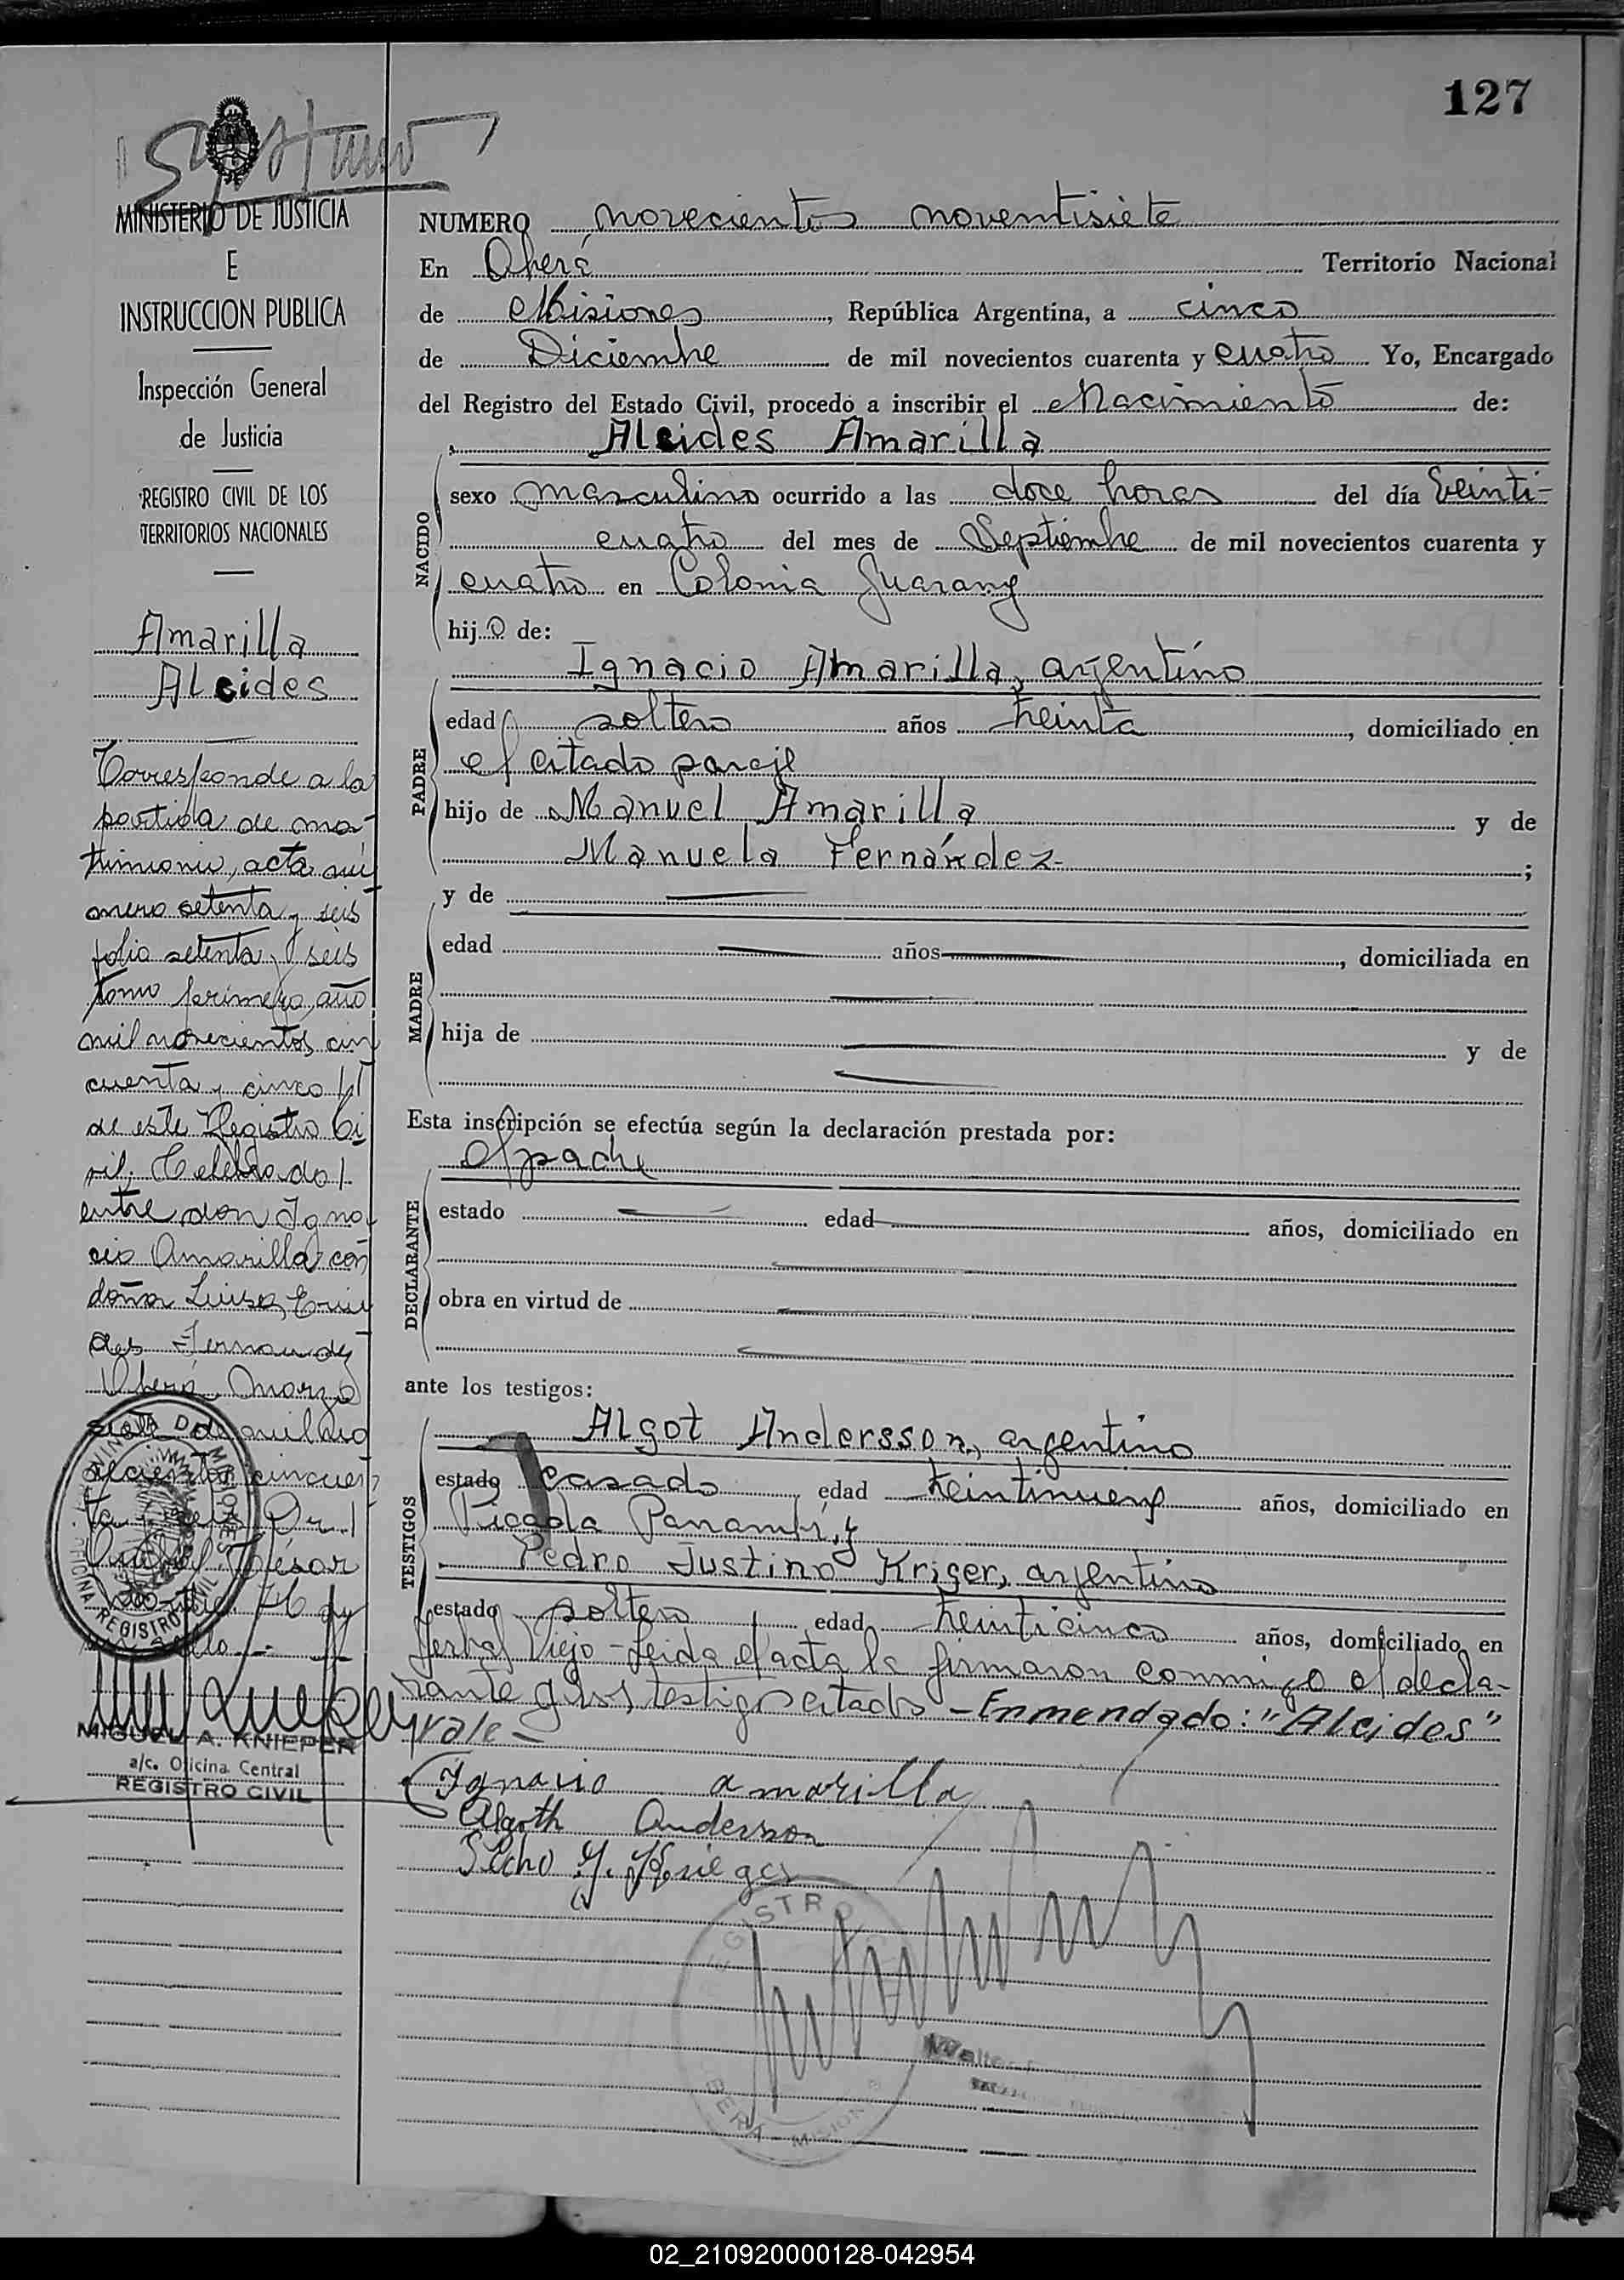 127
MINISTERIO DE JUSTICIA
E
INSTRUCCION PUBLICA
Inspección General
de Justicia
REGISTRO CIVIL DE LOS
TERRITORIOS NACIONALES
Amarilla
Alcides
Corresponde a la
partida de ma-
trimonio, acta nú
mero setenta y seis
folio setenta y seis
tomo primero, año
mil novecientos cin
cuenta y cinco
de este Registro Ci
vil, Celebrado
entre don Igna
cio Amarilla con
doña Luisa
Fernandez
Oberá, Marzo
siete de mil no
vecientos cincuen
ta y
MIGUEL A. KNIEPER
a/c. Oficina Central
REGISTRO CIVIL
NUMERO novecientos noventisiete
En Oberá Territorio Nacional
de Misiones, República Argentina, a cinco
de Diciembre de mil novecientos cuarenta y cuatro Yo, Encargado
del Registro del Estado Civil, procedo a inscribir el Nacimiento de:
Alcides Amarilla
NACIDO
sexo masculino ocurrido a las doce horas del día Veinti-
cuatro del mes de Septiembre de mil novecientos cuarenta y
cuatro en Colonia Guarany
hijo de:
Ignacio Amarilla, argentino
PADRE
edad soltero años treinta, domiciliado en
el citado paraje
hijo de Manuel Amarilla y de
Manuela Fernández ;
y de
MADRE
edad años, domiciliada en
hija de y de
Esta inscripción se efectúa según la declaración prestada por:
el padre
DECLARANTE
estado edad años, domiciliado en
obra en virtud de
ante los testigos:
TESTIGOS
Algot Andersson, argentino
estado casado edad treintinueve años, domiciliado en
Picada Panambí, y
Pedro Justino Kriger, argentino
estado soltero edad treinticinco años, domiciliado en
Yerbal Viejo - Leida el acta la firmaron conmigo el decla-
rante y los testigos citados - Enmendado: "Alcides"
vale -
Ignacio amarilla
Algoth Andersson
REGISTRO
OBERA - MISIONES
02_210920000128-042954